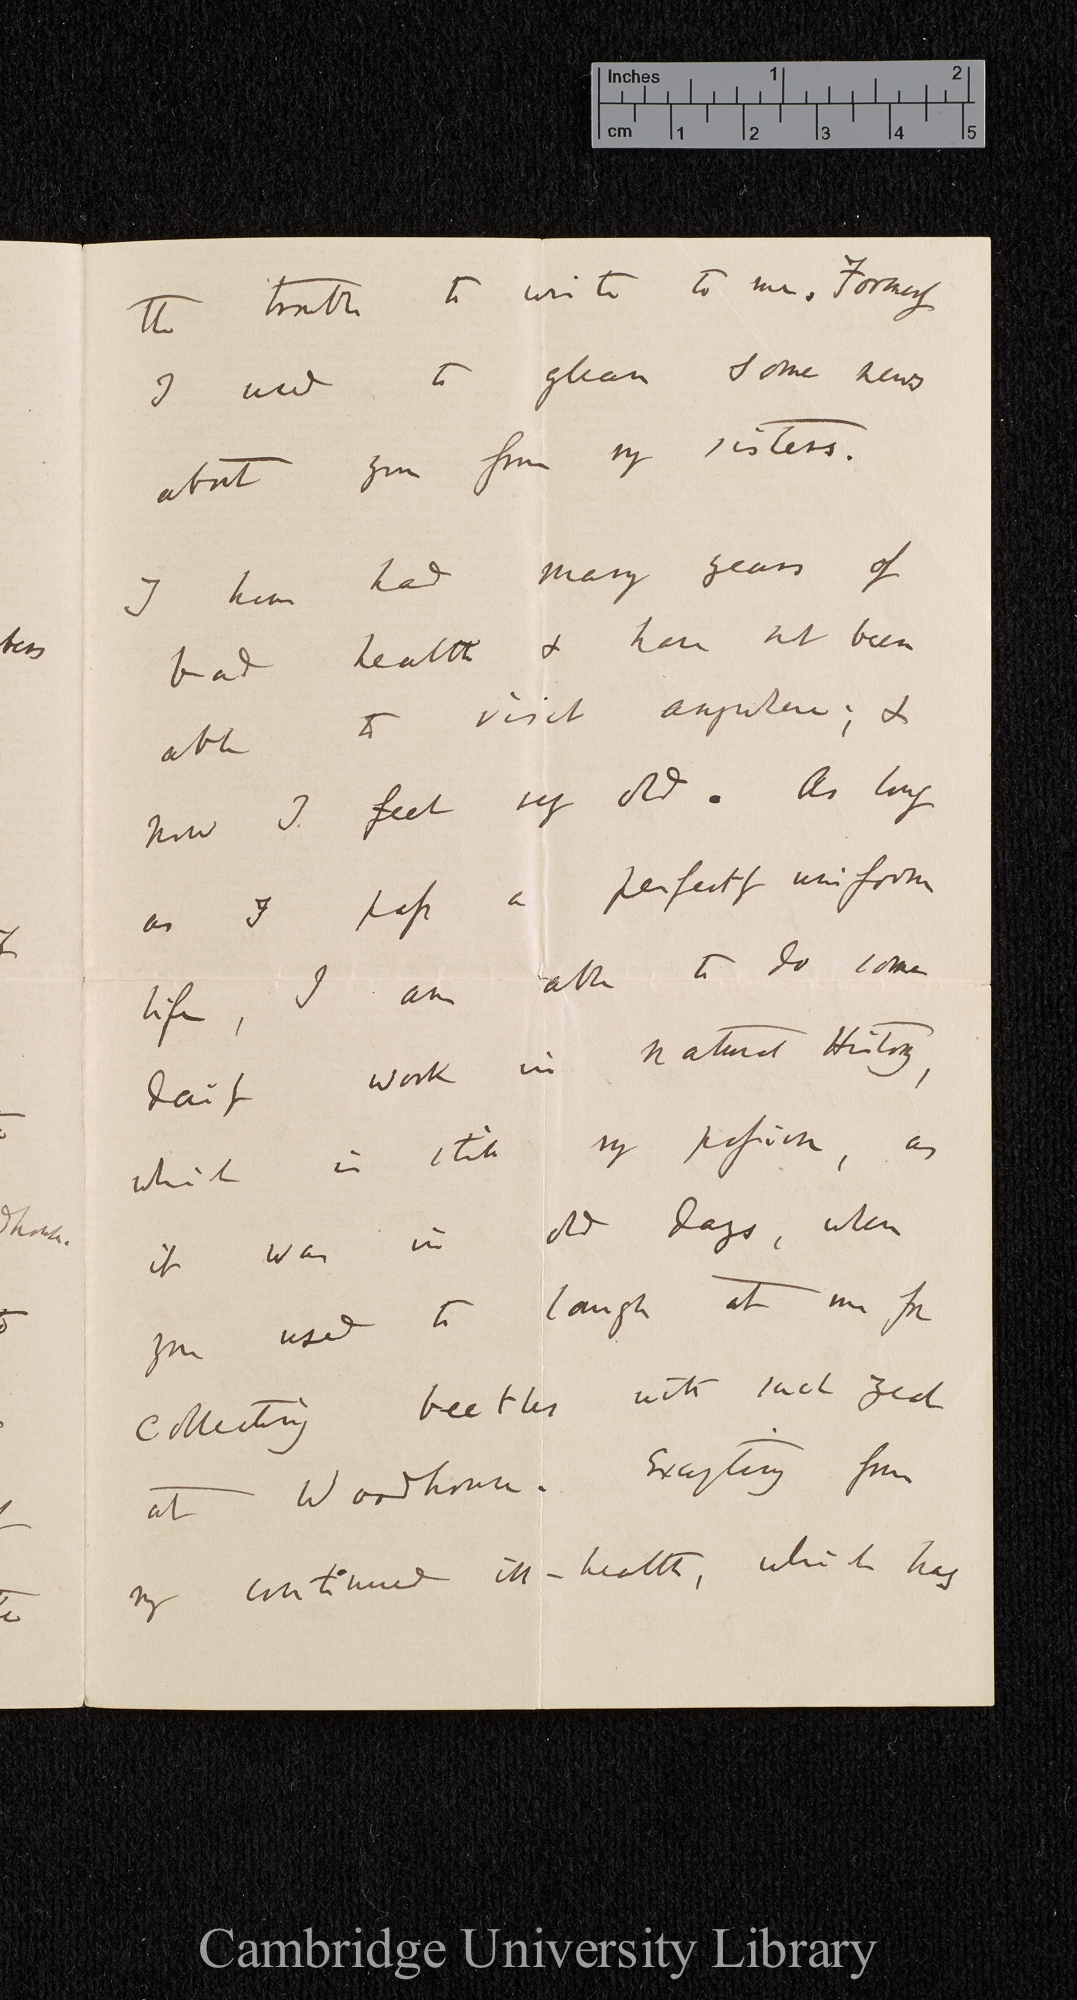 Inches 1 2
cm 1 2 3 4 5
the trouble to write to me. Formerly
I used to glean some news
about you from my sisters.
I have had many years of
bad health & have not been
able to visit anywhere; & 
now I feel very old. As long
as I pass a perfectly uniform
life, I am able to do some
daily work in Natural History,
which is still my passion, as
it was in old days, when
you used to laugh at me for
collecting beetles with such zeal
at Woodhouse. Excepting from
my continued ill-health, which has
Cambridge University Library